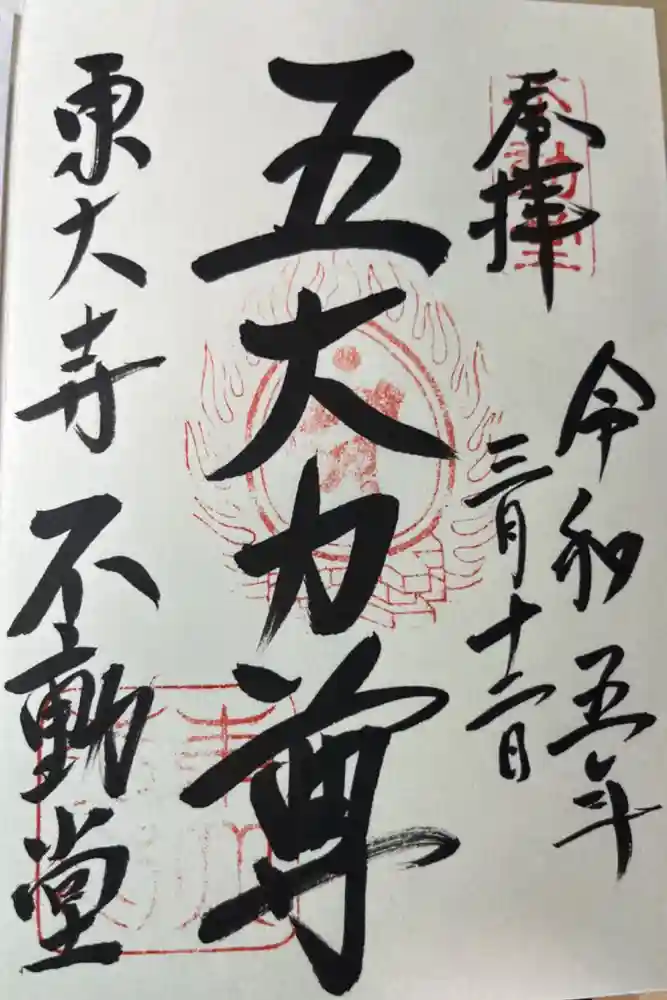 奉拝
令和五年
三月十二日
五大力尊
東大寺 不動堂
不動堂